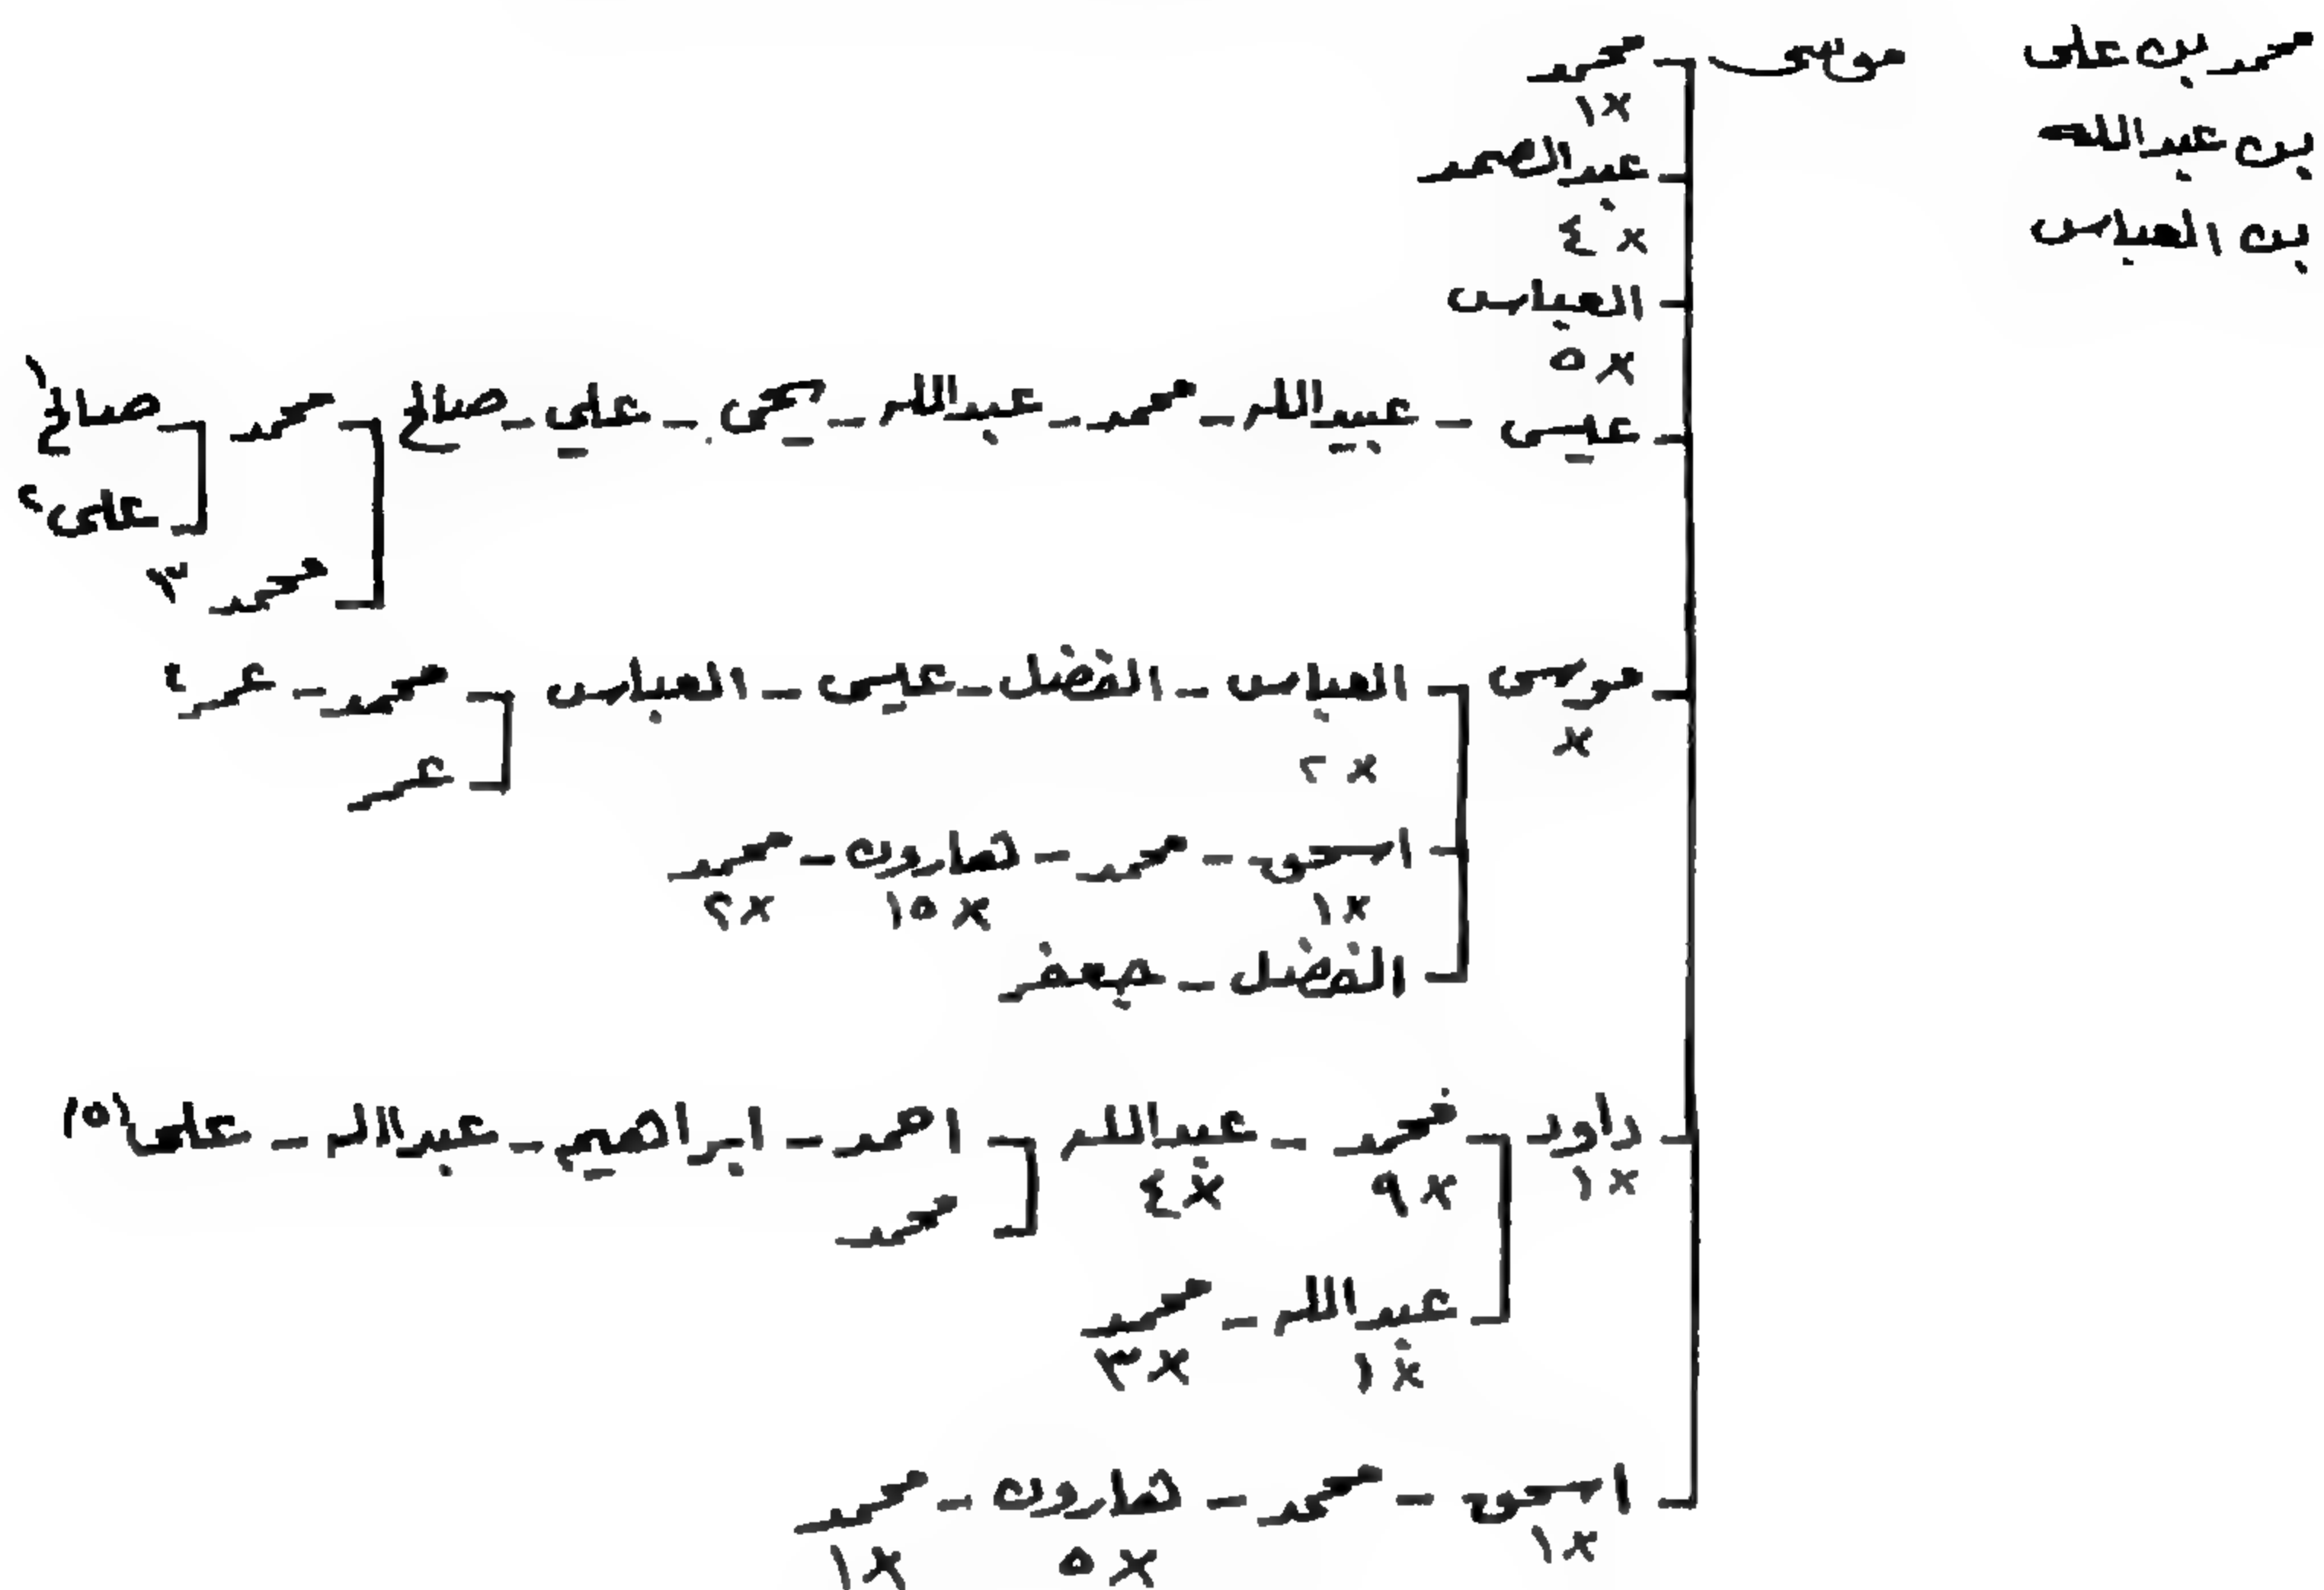 محمد بن على
بن عبدالله
بن العباس
موسى - محمد
x ١
عبدالصمد
x ٤
العباس
x ٥
عيسى - عبيدالله - محمد - عبدالله - يحيى - علي - صالح - محمد - صالح ١
على ٢
محمد ٣
موسى - العباس - الفضل - عيسى - العباس - محمد - عمر ٤
x
x ٢
عمر
اسحق - محمد - هارون - محمد
x ١ x ١٥ x ٢
الفضل - جعفر
داود - محمد - عبدالله - احمد - ابراهيم - عبدالله - على (٥)
x ١ x ٩ x ٤
محمد
عبدالله - محمد
x ١ x ٣
اسحق - محمد - هارون - محمد
x ١ x ٥ x ١